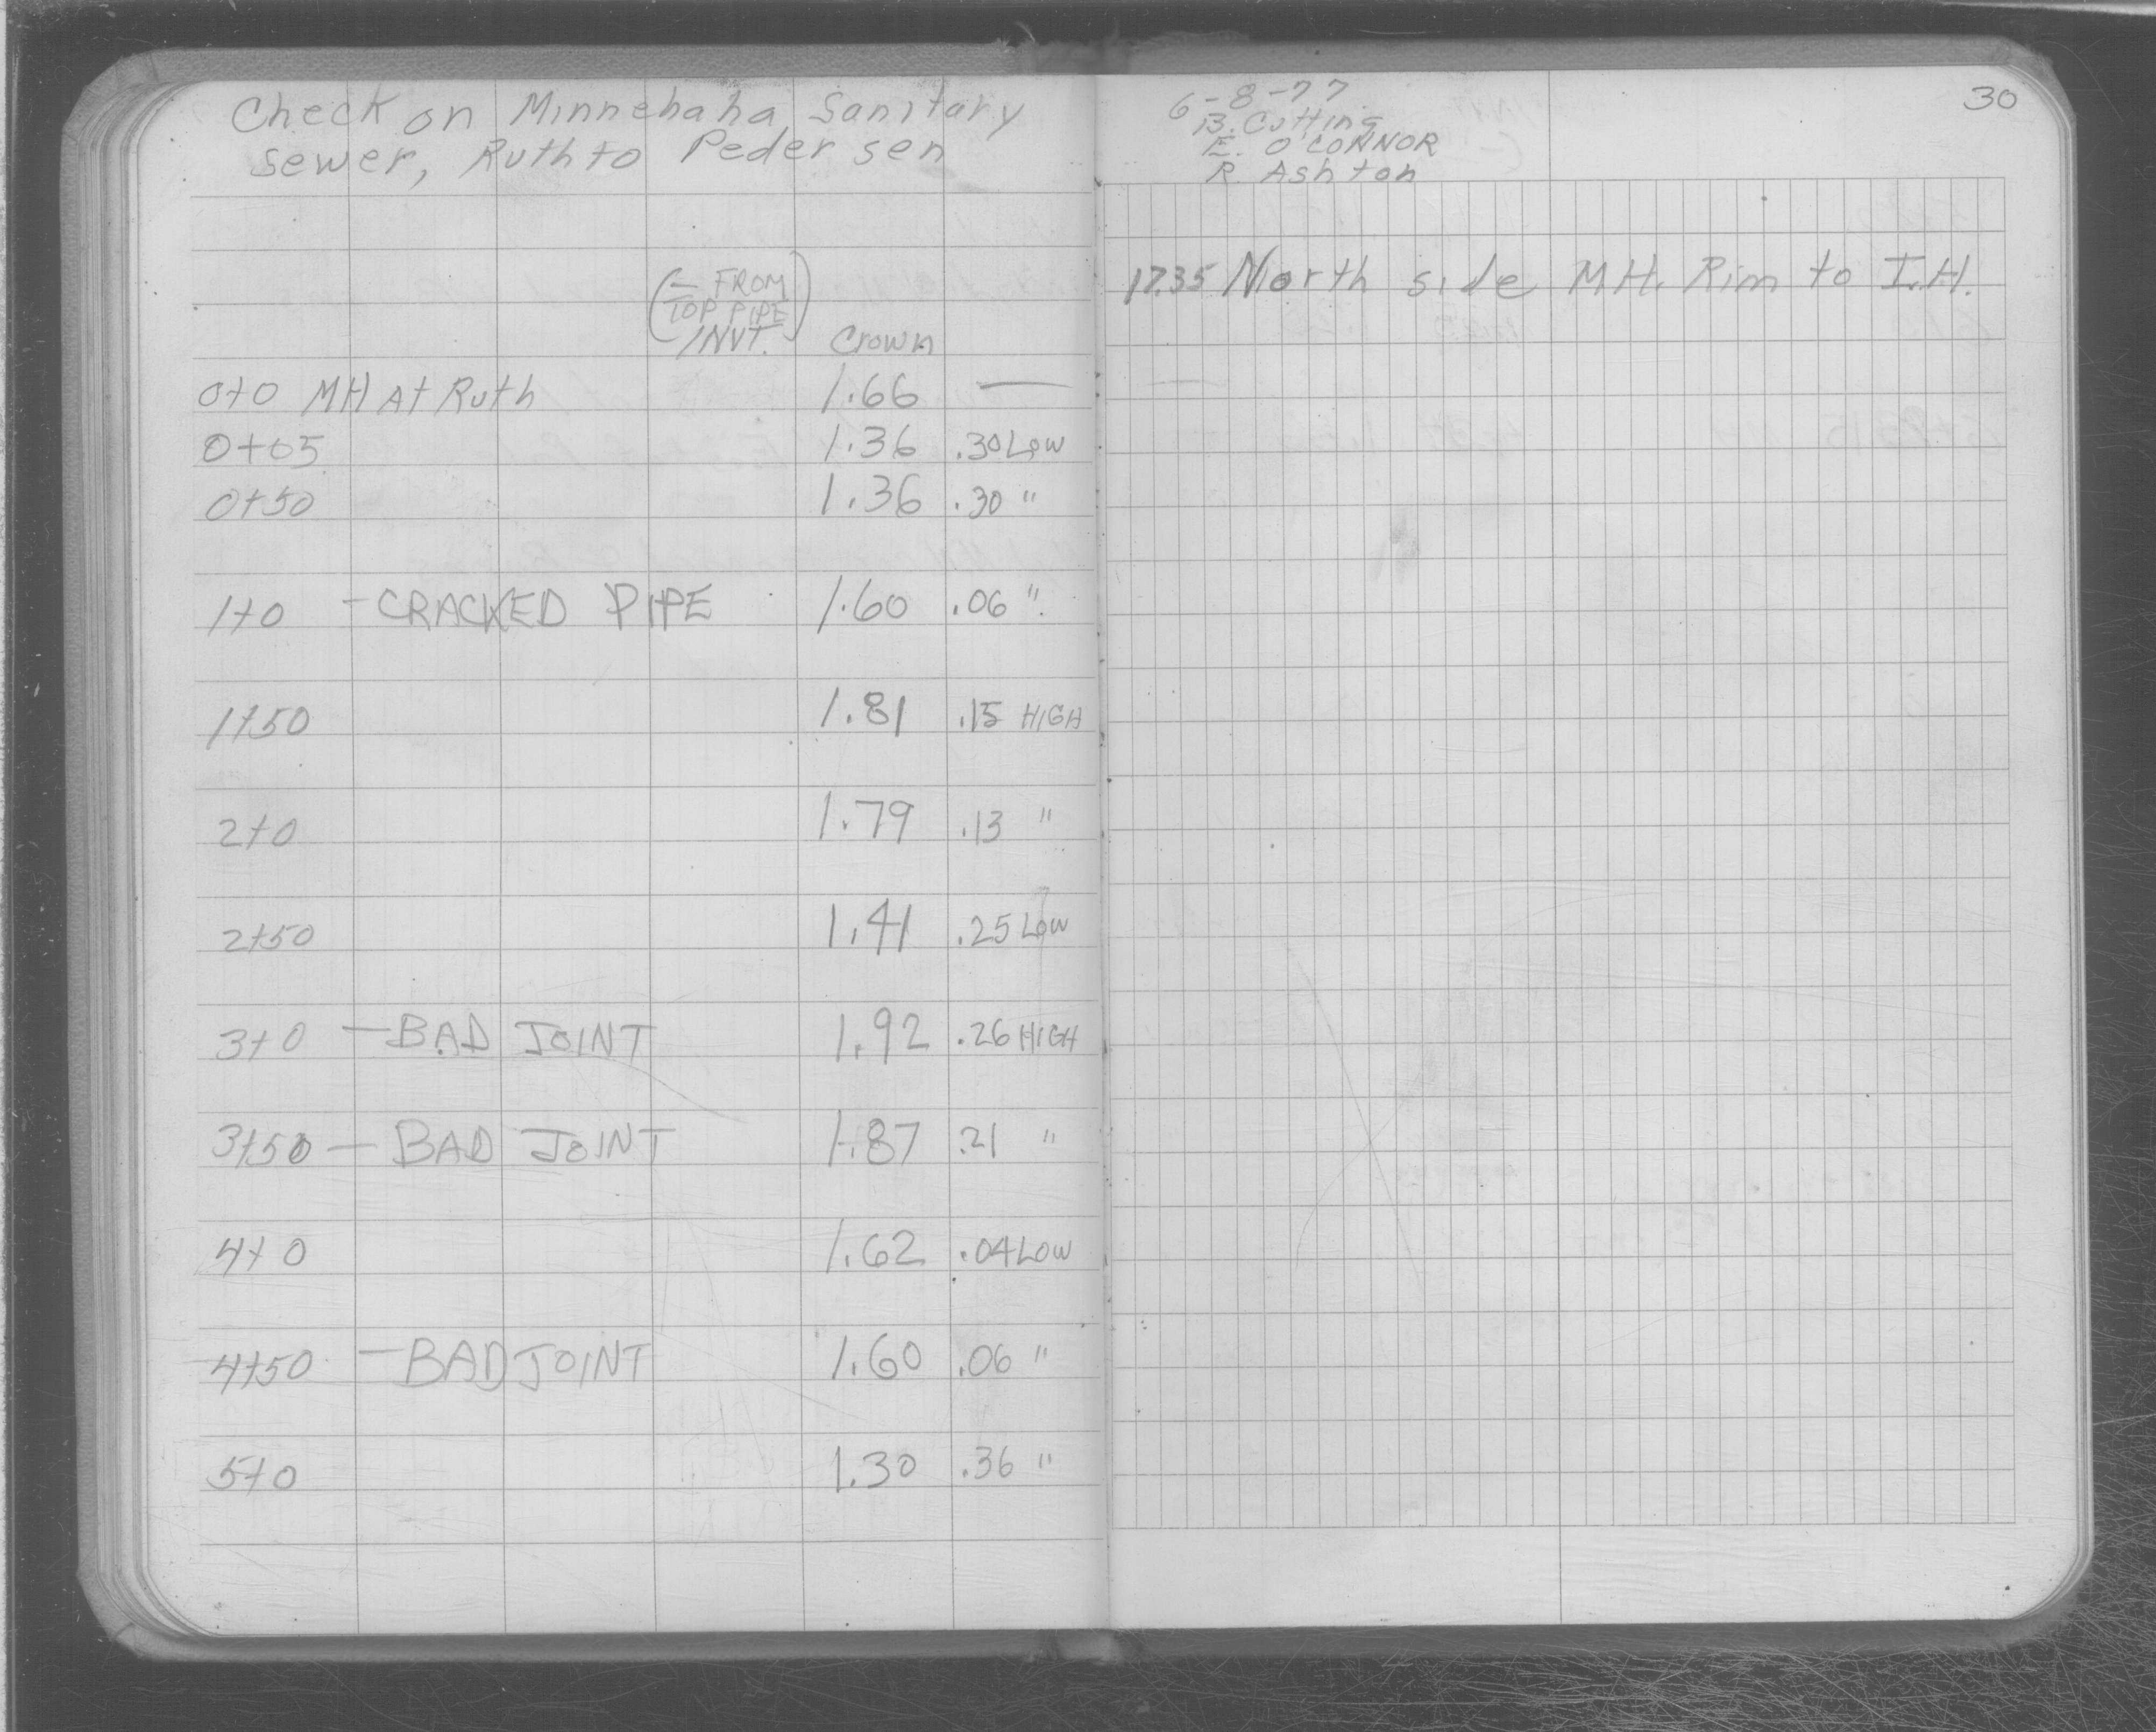 Check on Minnehaha Sanitary
Sewer, Ruth to Pedersen
(- FROM
TOP PIPE)
INVT. Crown
0+0 MH At Ruth 1.66 —
0+05 1.36 .30 Low
0+50 1.36 .30 "
1+0 - CRACKED PIPE 1.60 .06 "
1+50 1.81 .15 HIGH
2+0 1.79 .13 "
2+50 1.41 .25 Low
3+0 - BAD JOINT 1.92 .26 HIGH
3+50 - BAD JOINT 1.87 .21 "
4+0 1.62 .04 LOW
4+50 - BAD JOINT 1.60 .06 "
5+0 1.30 .36 "
30
6-8-77
B. Cutting
E. O'CONNOR
R. Ashton
17.35 North side MH. Rim to I.H.